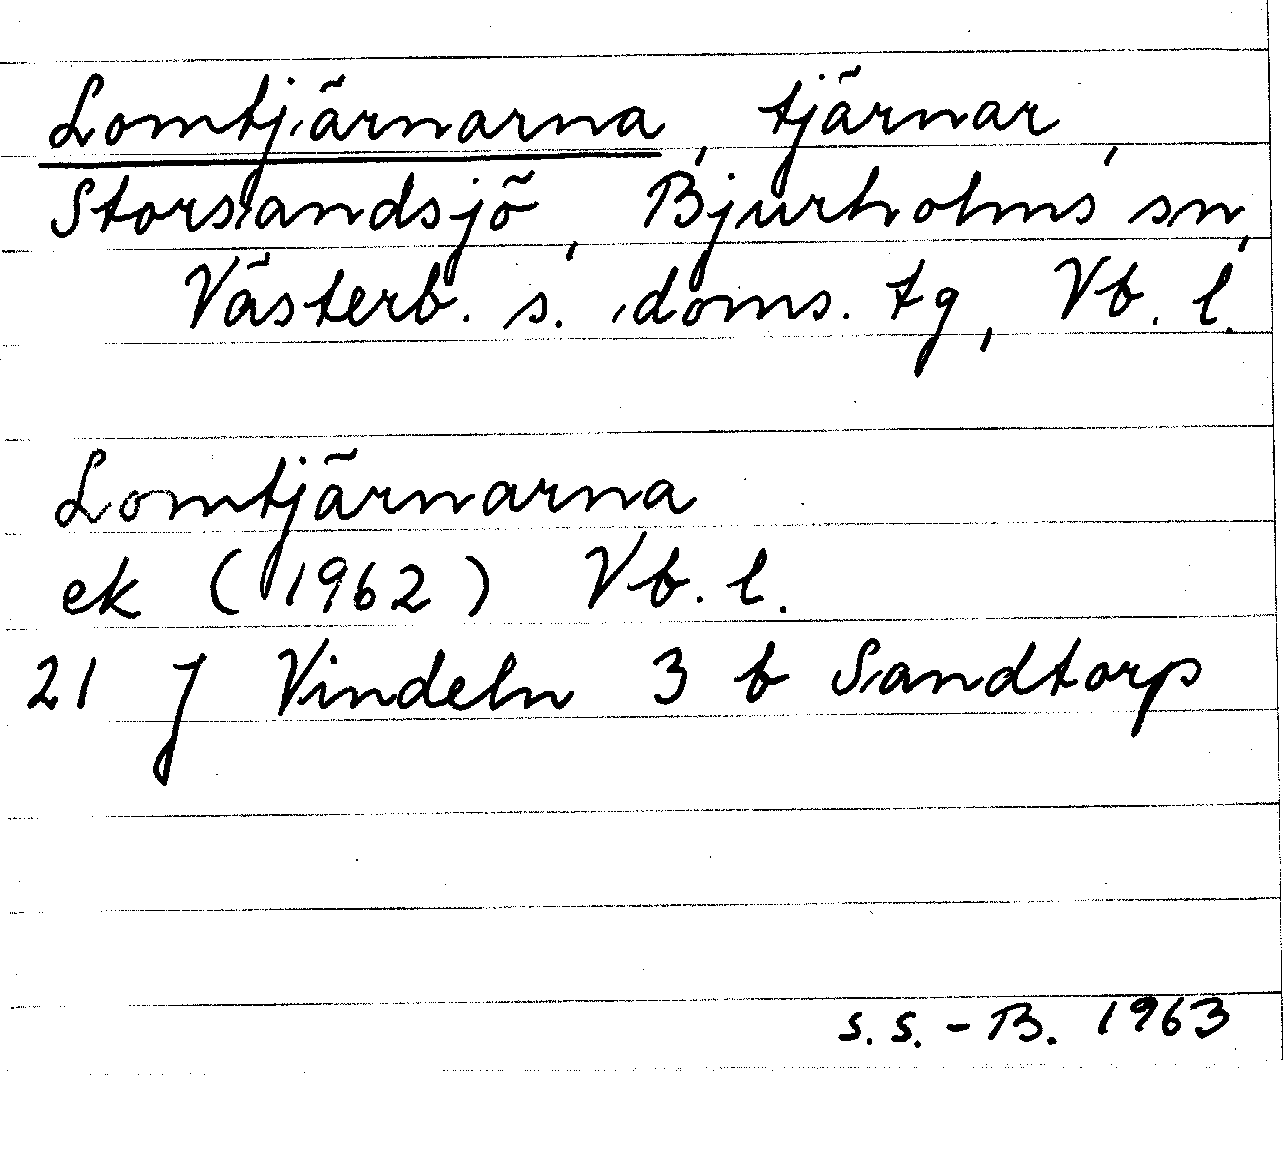 Lomtjärnarna, tjärnar,
Storsandsjö, Bjurholms sn,
Västerb. s. doms. tg, Vb. l.
Lomtjärnarna
ek (1962) Vb. l.
21 J Vindeln 3 b Sandtorp
S. S. - B. 1963